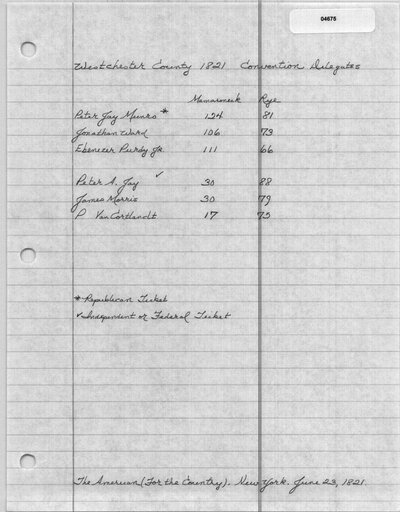 04675
Westchester County 1821 Convention Delegates
Mamaroneck Rye
Peter Jay Munro * 124 81
Jonathan Ward 106 73
Ebenezer Purdy Jr. 111 66
Peter A. Jay ✓ 30 88
James Morris 30 79
P Van Cortlandt 17 75
* Republican Ticket
✓ Independent or Federal Ticket
The American (For the Country). New York. June 23, 1821.